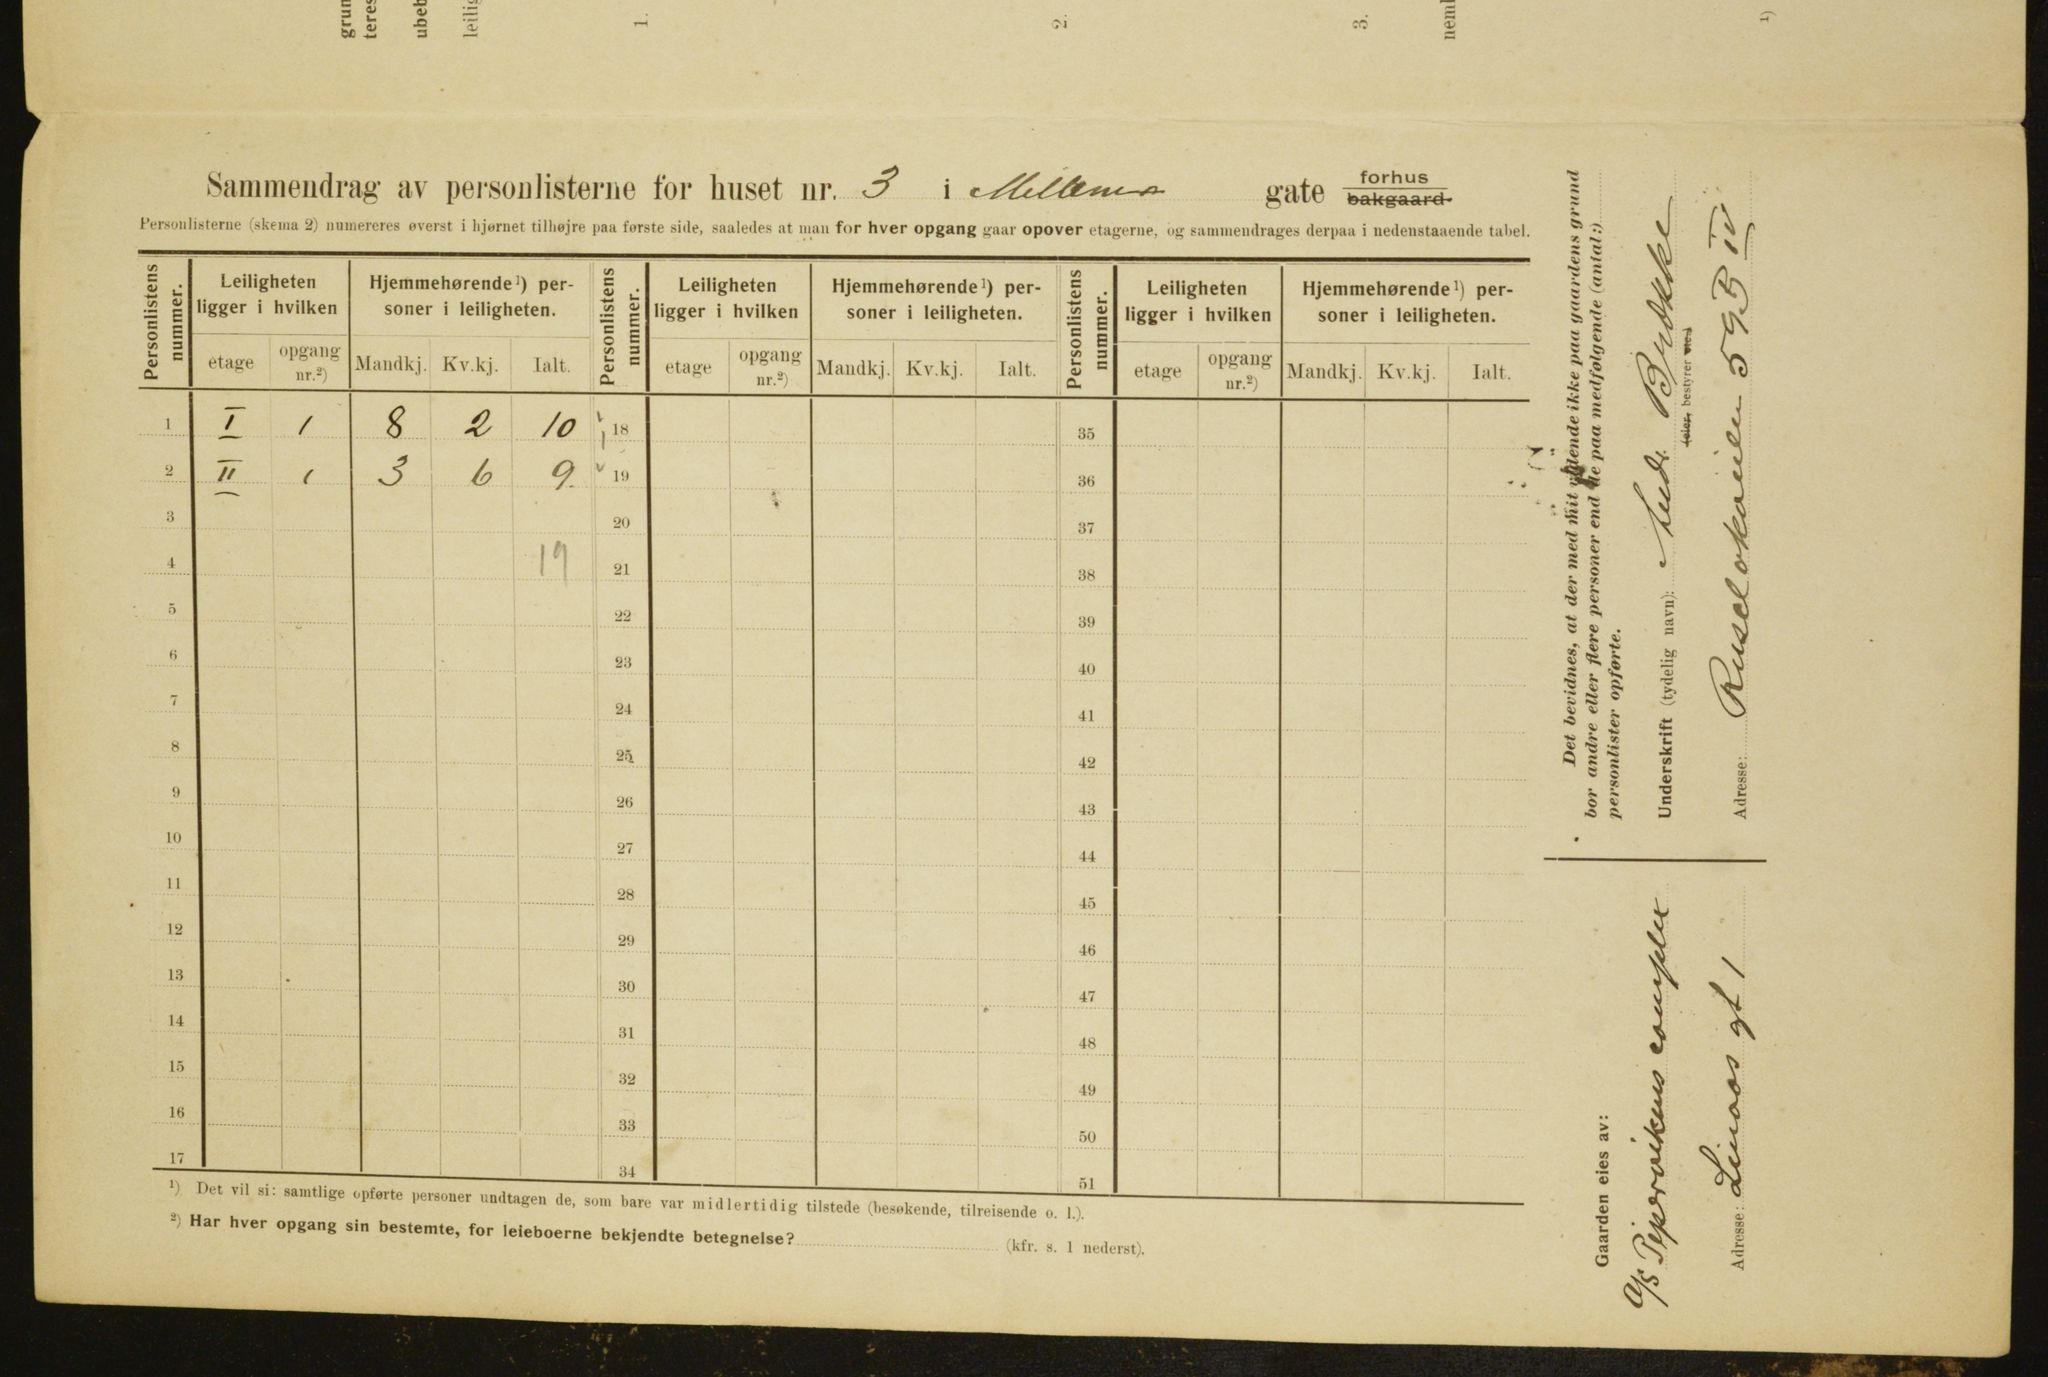 grun
teres
ubeb
leilig
1.
2.
3.
neml
1)
Sammendrag av personlisterne for huset nr. 3 i Mellem gate forhus
bakgaard.
Personlisterne (skema 2) numereres øverst i hjørnet tilhøjre paa første side, saaledes at man for hver opgang gaar opover etagerne, og sammendrages derpaa i nedenstaaende tabel.
Personlistens nummer. Leiligheten ligger i hvilken Hjemmehørende¹) personer i leiligheten. Personlistens nummer. Leiligheten ligger i hvilken Hjemmehørende¹) personer i leiligheten. Personlistens nummer. Leiligheten ligger i hvilken Hjemmehørende¹) personer i leiligheten.
etage opgang nr.²) Mandkj. Kv.kj. Ialt. etage opgang nr.²) Mandkj. Kv.kj. Ialt. etage opgang nr.²) Mandkj. Kv.kj. Ialt.
1 I 1 8 2 10 18 35
2 II 1 3 6 9 19 36
3 20 37
4 19 21 38
5 22 39
6 23 40
7 24 41
8 25 42
9 26 43
10 27 44
11 28 45
12 29 46
13 30 47
14 31 48
15 32 49
16 33 50
17 34 51
¹) Det vil si: samtlige opførte personer undtagen de, som bare var midlertidig tilstede (besøkende, tilreisende o. l.).
²) Har hver opgang sin bestemte, for leieboerne bekjendte betegnelse? (kfr. s. 1 nederst).
Det bevidnes, at der med mit vidende ikke paa gaardens grund
bor andre eller flere personer end de paa medfølgende (antal:)
personlister opførte.
Underskrift (tydelig navn): Ludv. Brække
eier, bestyrer
Adresse: Ruseløkveien 59 B IV
Gaarden eies av:
A/S Pipervikens complex
Adresse: Linaas gt 1